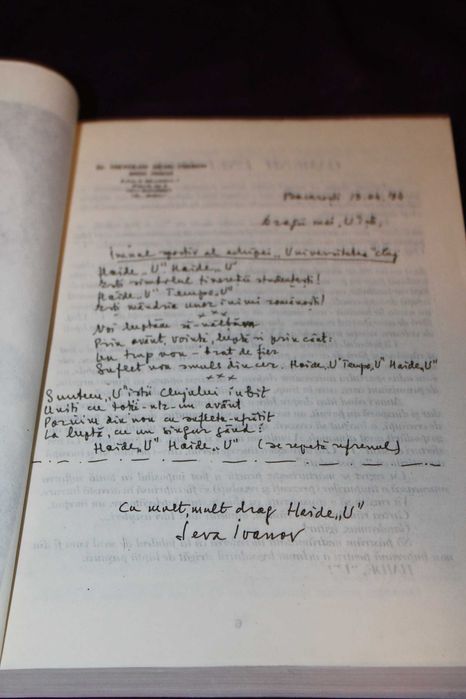 București 13.04.
Dragii mei, U-iști,
Imnul sportiv al echipei „Universitatea" Cluj
Haide „U" Haide „U"
Ești simbolul tinereții studențești!
Haide „U" Tempo „U"
Ești mândria unor inimi românești!
***
Noi luptăm să-nălțăm
Prin avânt, voință, luptă și prin cânt:
Un trup nou - brat de fier
Suflet nou smuls din cer. Haide „U" Tempo „U" Haide „U"
***
Suntem „U"-iștii Clujului iubit
Uniți cu toții-ntr-un avânt
Pornim din nou cu suflet-nfrățit
La luptă, cu un singur gând:
Haide „U" Haide „U" (se repetă refrenul)
Cu mult, mult drag Haide „U"
Seva Ivanov
6